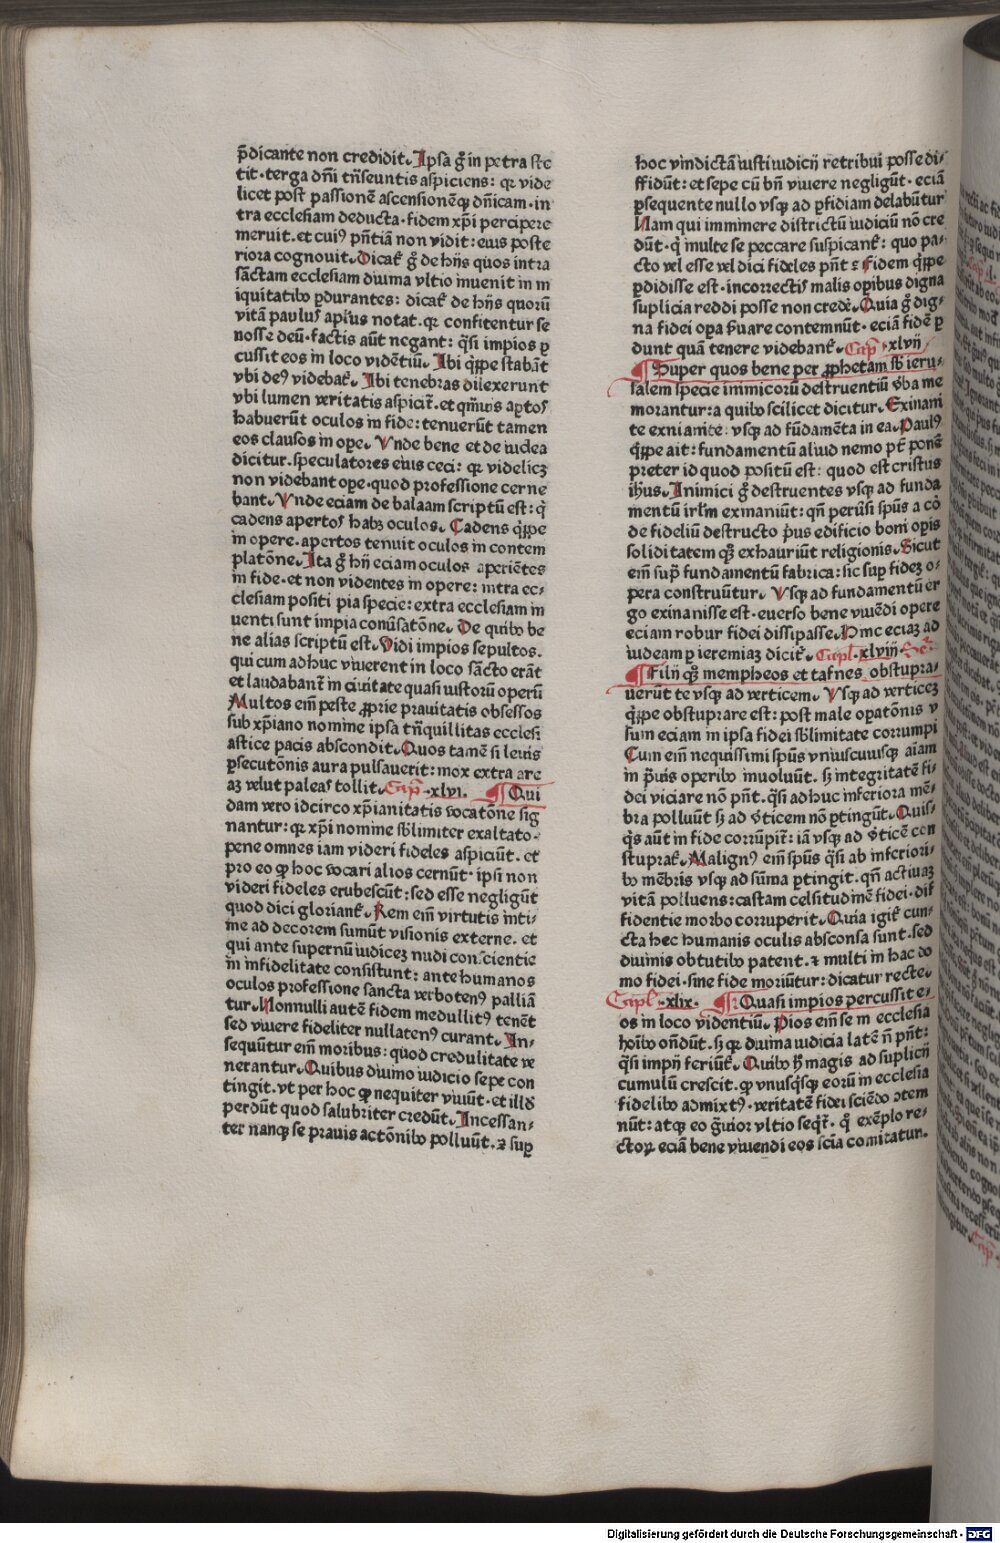 p̄dicante non credidit. Ipsa g̊ in petra ste
tit. terga dn̄i trn̄seuntis aspiciens: qꝛ vide
licet post passionē ascensionēqꝫ dn̄icam. in
tra ecclesiam deducta. fidem xp̄i percipere
meruit. et cuiꝰ pn̄tiā non vidit: eius poste
riora cognouit. Dicat᷑ g̊ de hijs quos intra
sāctam ecclesiam diuina vltio inuenit in in
iquitatibꝰ ꝑdurantes: dicat᷑ de hijs quorū
vitā paulus apl̄us notat. qꝛ confitentur se
nosse deū. factis aūt negant: q̄si impios ꝑ
cussit eos in loco vidētiū. Ibi q̄ppe stabāt
vbi deꝰ videbat᷑. Ibi tenebras dilexerunt
vbi lumen veritatis aspicit᷑. et qm̄uis aptos
habuerūt oculos in fide: tenuerūt tamen
eos clausos in ope. Vnde bene et de iudea
dicitur. speculatores eius ceci: qꝛ videlicꝫ
non videbant ope. quod professione cerne
bant. Vnde eciam de balaam scriptū est: q̇
cadens apertos habꝫ oculos. Cadens q̄ppe
in opere. apertos tenuit oculos in contem
platōne. Ita g̊ hij eciam oculos aperiētes
in fide. et non videntes in opere: intra ec-
clesiam positi pia specie: extra ecclesiam in
uenti sunt impia conūsatōne. De quibꝰ be
ne alias scriptū est. Vidi impios sepultos.
qui cum adhuc viuerent in loco sācto erāt
et laudabant᷑ in ciuitate quasi iustorū operū
Multos em̄ peste ꝓprie prauitatis obsessos
sub xp̄iano nomine ipsa trn̄quillitas ecclesi
astice pacis abscondit. Quos tamē si leuis
ꝑsecutōnis aura pulsauerit: mox extra are
aꝫ velut paleas tollit. Cap̄. xlvi. ¶ Qui
dam vero idcirco xp̄ianitatis vocatōne sig
nantur: qꝛ xp̄i nomine sb̄limiter exaltato.
pene omnes iam videri fideles aspiciūt. et
pro eo ꝙ hoc vocari alios cernūt. ipsi non
videri fideles erubescūt: sed esse negligūt
quod dici gloriant᷑. Rem em̄ virtutis inti-
me ad decorem sumūt visionis externe. et
qui ante supernū iudicꝫ nudi conscientie
in infidelitate consistunt: ante humanos
oculos professione sancta verbotenꝰ palliā
tur. Nonnulli autē fidem medullitꝰ tenēt
sed viuere fideliter nullatenꝰ curant. In-
sequūtur em̄ moribus: quod credulitate ve
nerantur. Quibus diuino iudicio sepe con
tingit. vt per hoc ꝙ nequiter viuūt. et illd̄
perdūt quod salubriter credūt. Incessan-
ter nanqꝫ se prauis actōnibꝰ polluūt. ⁊ suꝑ
hoc vindictā iusti iudicij retribui posse di-
ffidūt: et sepe cū bn̄ viuere negligūt. eciā
ꝑsequente nullo vsqꝫ ad ꝑfidiam delabūtur
Nam qui imminere districtū iudiciū nō cre
dūt. q̇ inulte se peccare suspicant᷑: quo pa-
cto vel esse vel dici fideles pn̄t? Fidem q̄ppe
ꝑdidisse est. incorrectis malis oꝑibus digna
suplicia reddi posse non credeꝛ̄. Quia g̊ dig-
na fidei oꝑa ẜuare contemnūt. eciā fidē ꝑ
dunt quā tenere videbant᷑. Cap̄. xlvij
¶ Super quos bene per ꝓphetam sb̄ ieru-
salem specie inimicorū destruentiū v̄ba me
morantur: a quibꝰ scilicet dicitur. Exinani
te exinanite: vsqꝫ ad fūdamēta in ea. Paulꝰ
q̄ppe ait: fundamentū aliud nemo pt̄ ponē
preter id quod positū est: quod est cristus
ih̄us. Inimici g̊ destruentes vsqꝫ ad funda
mentū irl̄m exinaniūt: qn̄ perūsi spūs a cor̄
de fideliū destructo ṗus edificio boni opis
soliditatem qꝫ exhauriūt religionis. Sicut
em̄ suꝑ fundamentū fabrica: sic suꝑ fidꝫ o-
pera construūtur. Vsqꝫ ad fundamentū er
go exinanisse est. euerso bene viuēdi opere
eciam robur fidei dissipasse. Hinc eciaꝫ ad
iudeam ꝑ ieremiaꝫ dicit᷑. Capl̄. xlviij
¶ Filij qꝫ mempheos et tafnes obstupra-
uerūt te vsqꝫ ad verticem. Vsqꝫ ad verticeꝫ
q̄ppe obstuprare est: post male oꝑatōnis v
sum eciam in ipsa fidei sb̄limitate corrumpi
Cum em̄ nequissimi spūs vniuscuiusqꝫ aīam
in p̄uis operibꝰ inuoluūt. sꝫ integritatē fi-
dei viciare nō pn̄t. q̄si adhuc inferiora mē-
bra polluūt sꝫ ad v̄ticem nō ꝑtingūt. Quis-
q̇s aūt in fide corrūpit᷑: iā vsqꝫ ad v̄ticē con
stuprat᷑. Malignꝰ em̄ spūs q̄si ab inferiori-
bꝰ mēbris vsqꝫ ad sūma ꝑtingit. qn̄ actiuaꝫ
vitā polluens: castam celsitudinē fidei. dif
fidentie morbo corruperit. Quia igit᷑ cun-
cta hec humanis oculis absconsa sunt. sed
diuinis obtutibꝰ patent. ⁊ multi in hac do
mo fidei. sine fide moriūtur: dicatur recte.
Capl̄. xlix. ¶ Quasi impios percussit e-
os in loco videntiū. Pios em̄ se in ecclesia
hoībꝰ ondūt. sꝫ qꝛ diuina iudicia latē n̄ pn̄t:
q̄si impij feriūt᷑. Quibꝰ hꝫ magis ad suplicij
cumulū crescit. ꝙ vnusq̇sqꝫ eorū in ecclesia
fidelibꝰ admixtꝰ. veritatē fidei sciēdo ↄtem
nūt: atqꝫ eo g̊uior vltio seqt᷑. q̊ exēplo re-
ctoꝝ eciā bene viuendi eos scīa comitatur.
Digitalisierung gefördert durch die Deutsche Forschungsgemeinschaft - DFG